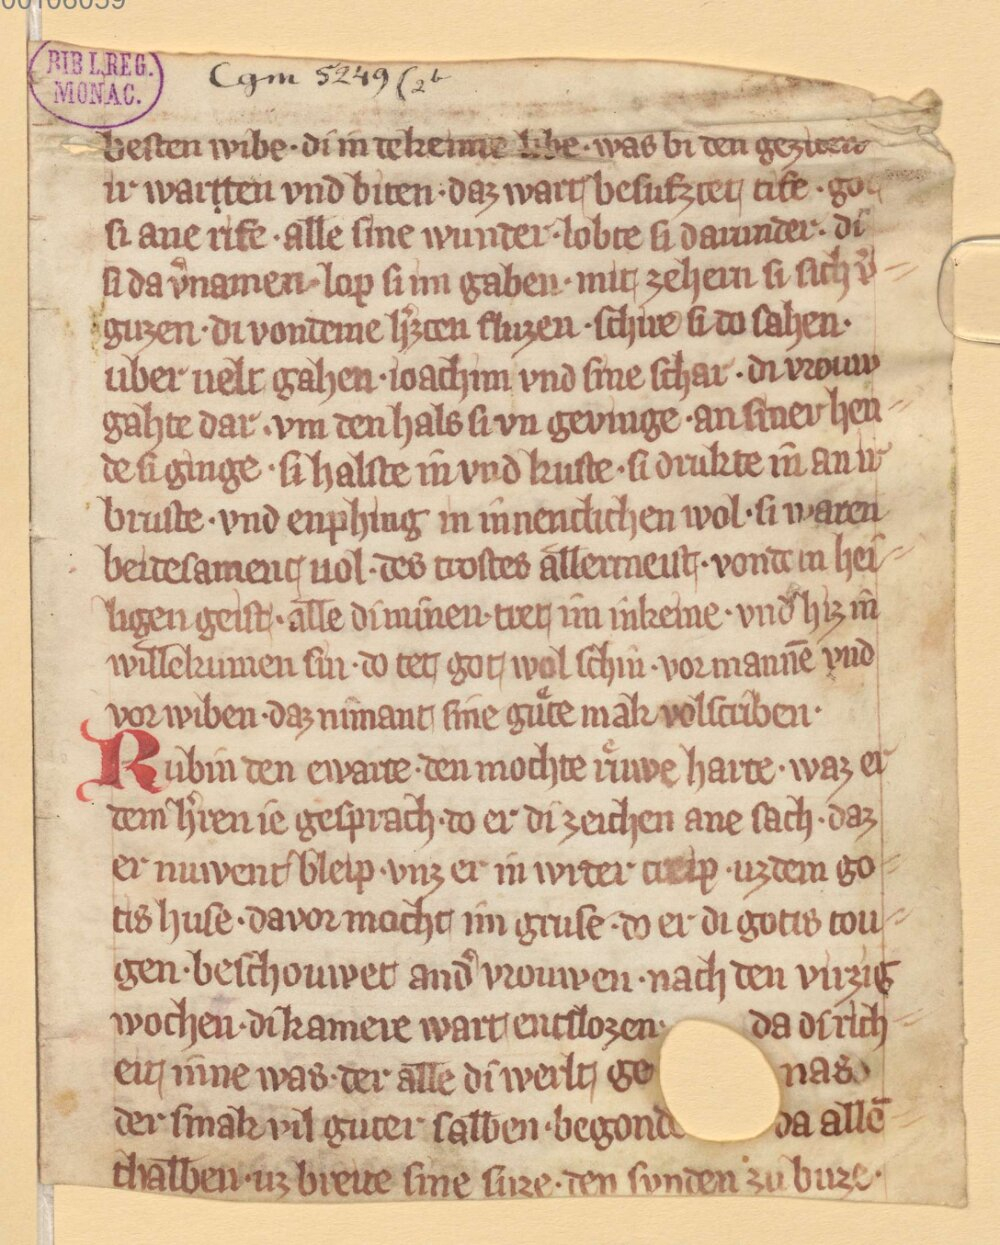 00106059
BIBL.REG.
MONAC.
Cgm 5249 (2b
besten wibe · di in tekeinme libe · was bi den geziten
ir wartten vnd biten · daz wart besufztet tife · got
si ane rife · alle sine wunder · lobte si darunder · di
si da v̾namen · lop si im gaben · mit zehern si sich v̾-
guzen · di von deme h̾zcen fluzen · schire si do sahen ·
uber uelt gahen · ioachim vnd sine schar · di vrouw
gahte dar · vm den hals si vn gevinge · an siner hen-
de si ginge · si halste in̄ vnd kuste · si drukte in̄ an ir
bruste · vnd enphing in innenclichen wol · si waren
beidesament uol · des trostes allermeist · von dem hei-
ligen geist · alle di minen · tret im inkeine · vnd hiz in̄
willekumen sin · do tet got wol schin · vor mannē vnd
vor wiben · daz nimant sine gu̇te mak volscriben ·
Rubin den ewarte · den mochte ruͤwe harte · waz er
dem h̾ren ie gesprach · do er di zeichen ane sach · daz
er nuwent bleip · vnz er in wider treip · uz dem go-
tis huse · davor macht im gruse · do er di gotis tou-
gen · beschouwet an d̾ vrouwen · nach den virzig
wochen · di kamere wart entslozen · da di rich-
eit inne was · der alle di werlt ge nas ·
der smak vil guter salben · begonde da allē-
thalben · uz breite sine suze · den sunden zu buze ·